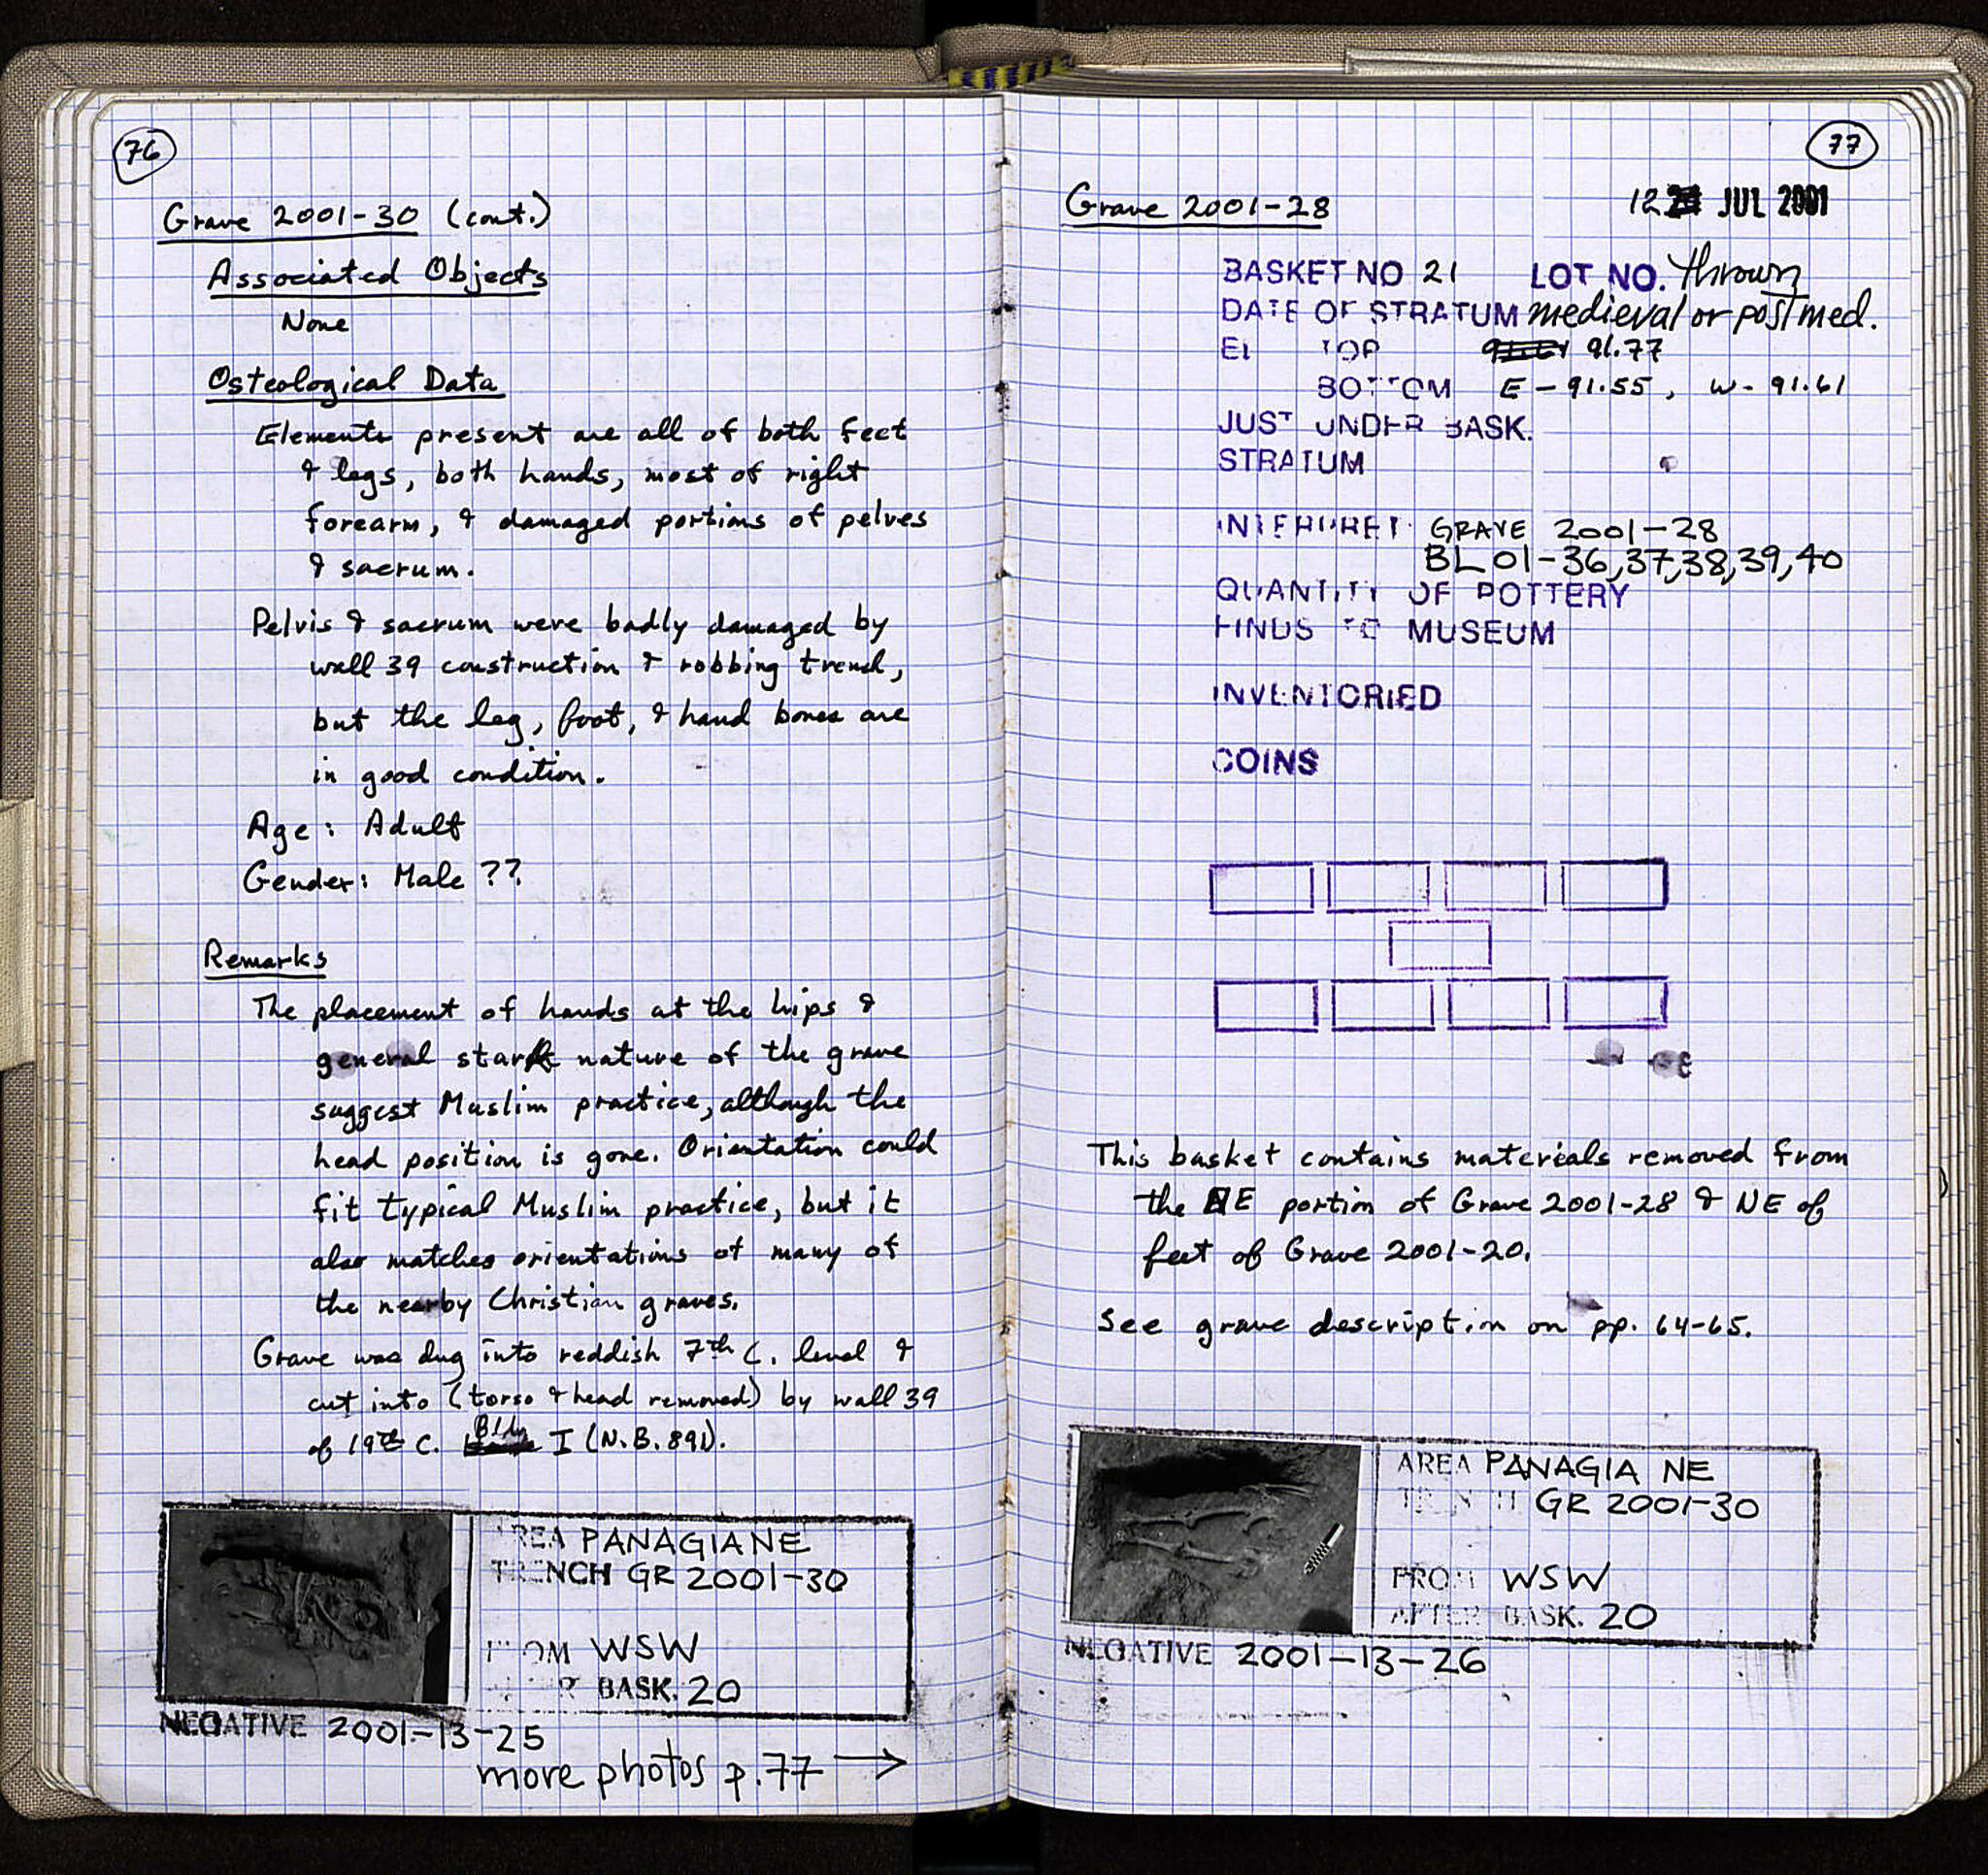 76
Grave 2001-30 (cont.)
Associated Objects
None
Osteological Data
Elements present are all of both feet
& legs, both hands, most of right
forearm, & damaged portions of pelves
& sacrum.
Pelvis & sacrum were badly damaged by
wall 39 construction & robbing trench,
but the leg, foot, & hand bones are
in good condition.
Age: Adult
Gender: Male ??
Remarks
The placement of hands at the hips &
general stark nature of the grave
suggest Muslim practice, although the
head position is gone. Orientation could
fit typical Muslim practice, but it
also matches orientations of many of
the nearby Christian graves.
Grave was dug into reddish 7th C. level &
cut into (torso & head removed) by wall 39
of 19th C. Bldg I (N.B. 891).
AREA PANAGIA NE
TRENCH GR 2001-30
FROM WSW
AFTER BASK. 20
NEGATIVE 2001-13-25
more photos p.77 →
77
Grave 2001-28
12 JUL 2001
BASKET NO 21 LOT NO. thrown
DATE OF STRATUM medieval or postmed.
EL TOP 91.77
BOTTOM E - 91.55, W - 91.61
JUST UNDER BASK.
STRATUM
INTERPRET. GRAVE 2001-28
BL 01-36,37,38,39,40
QUANTITY OF POTTERY
FINDS TO MUSEUM
INVENTORIED
COINS
This basket contains materials removed from
the NE portion of Grave 2001-28 & NE of
feet of Grave 2001-20.
See grave description on pp. 64-65.
AREA PANAGIA NE
TRENCH GR 2001-30
FROM WSW
AFTER BASK. 20
NEGATIVE 2001-13-26